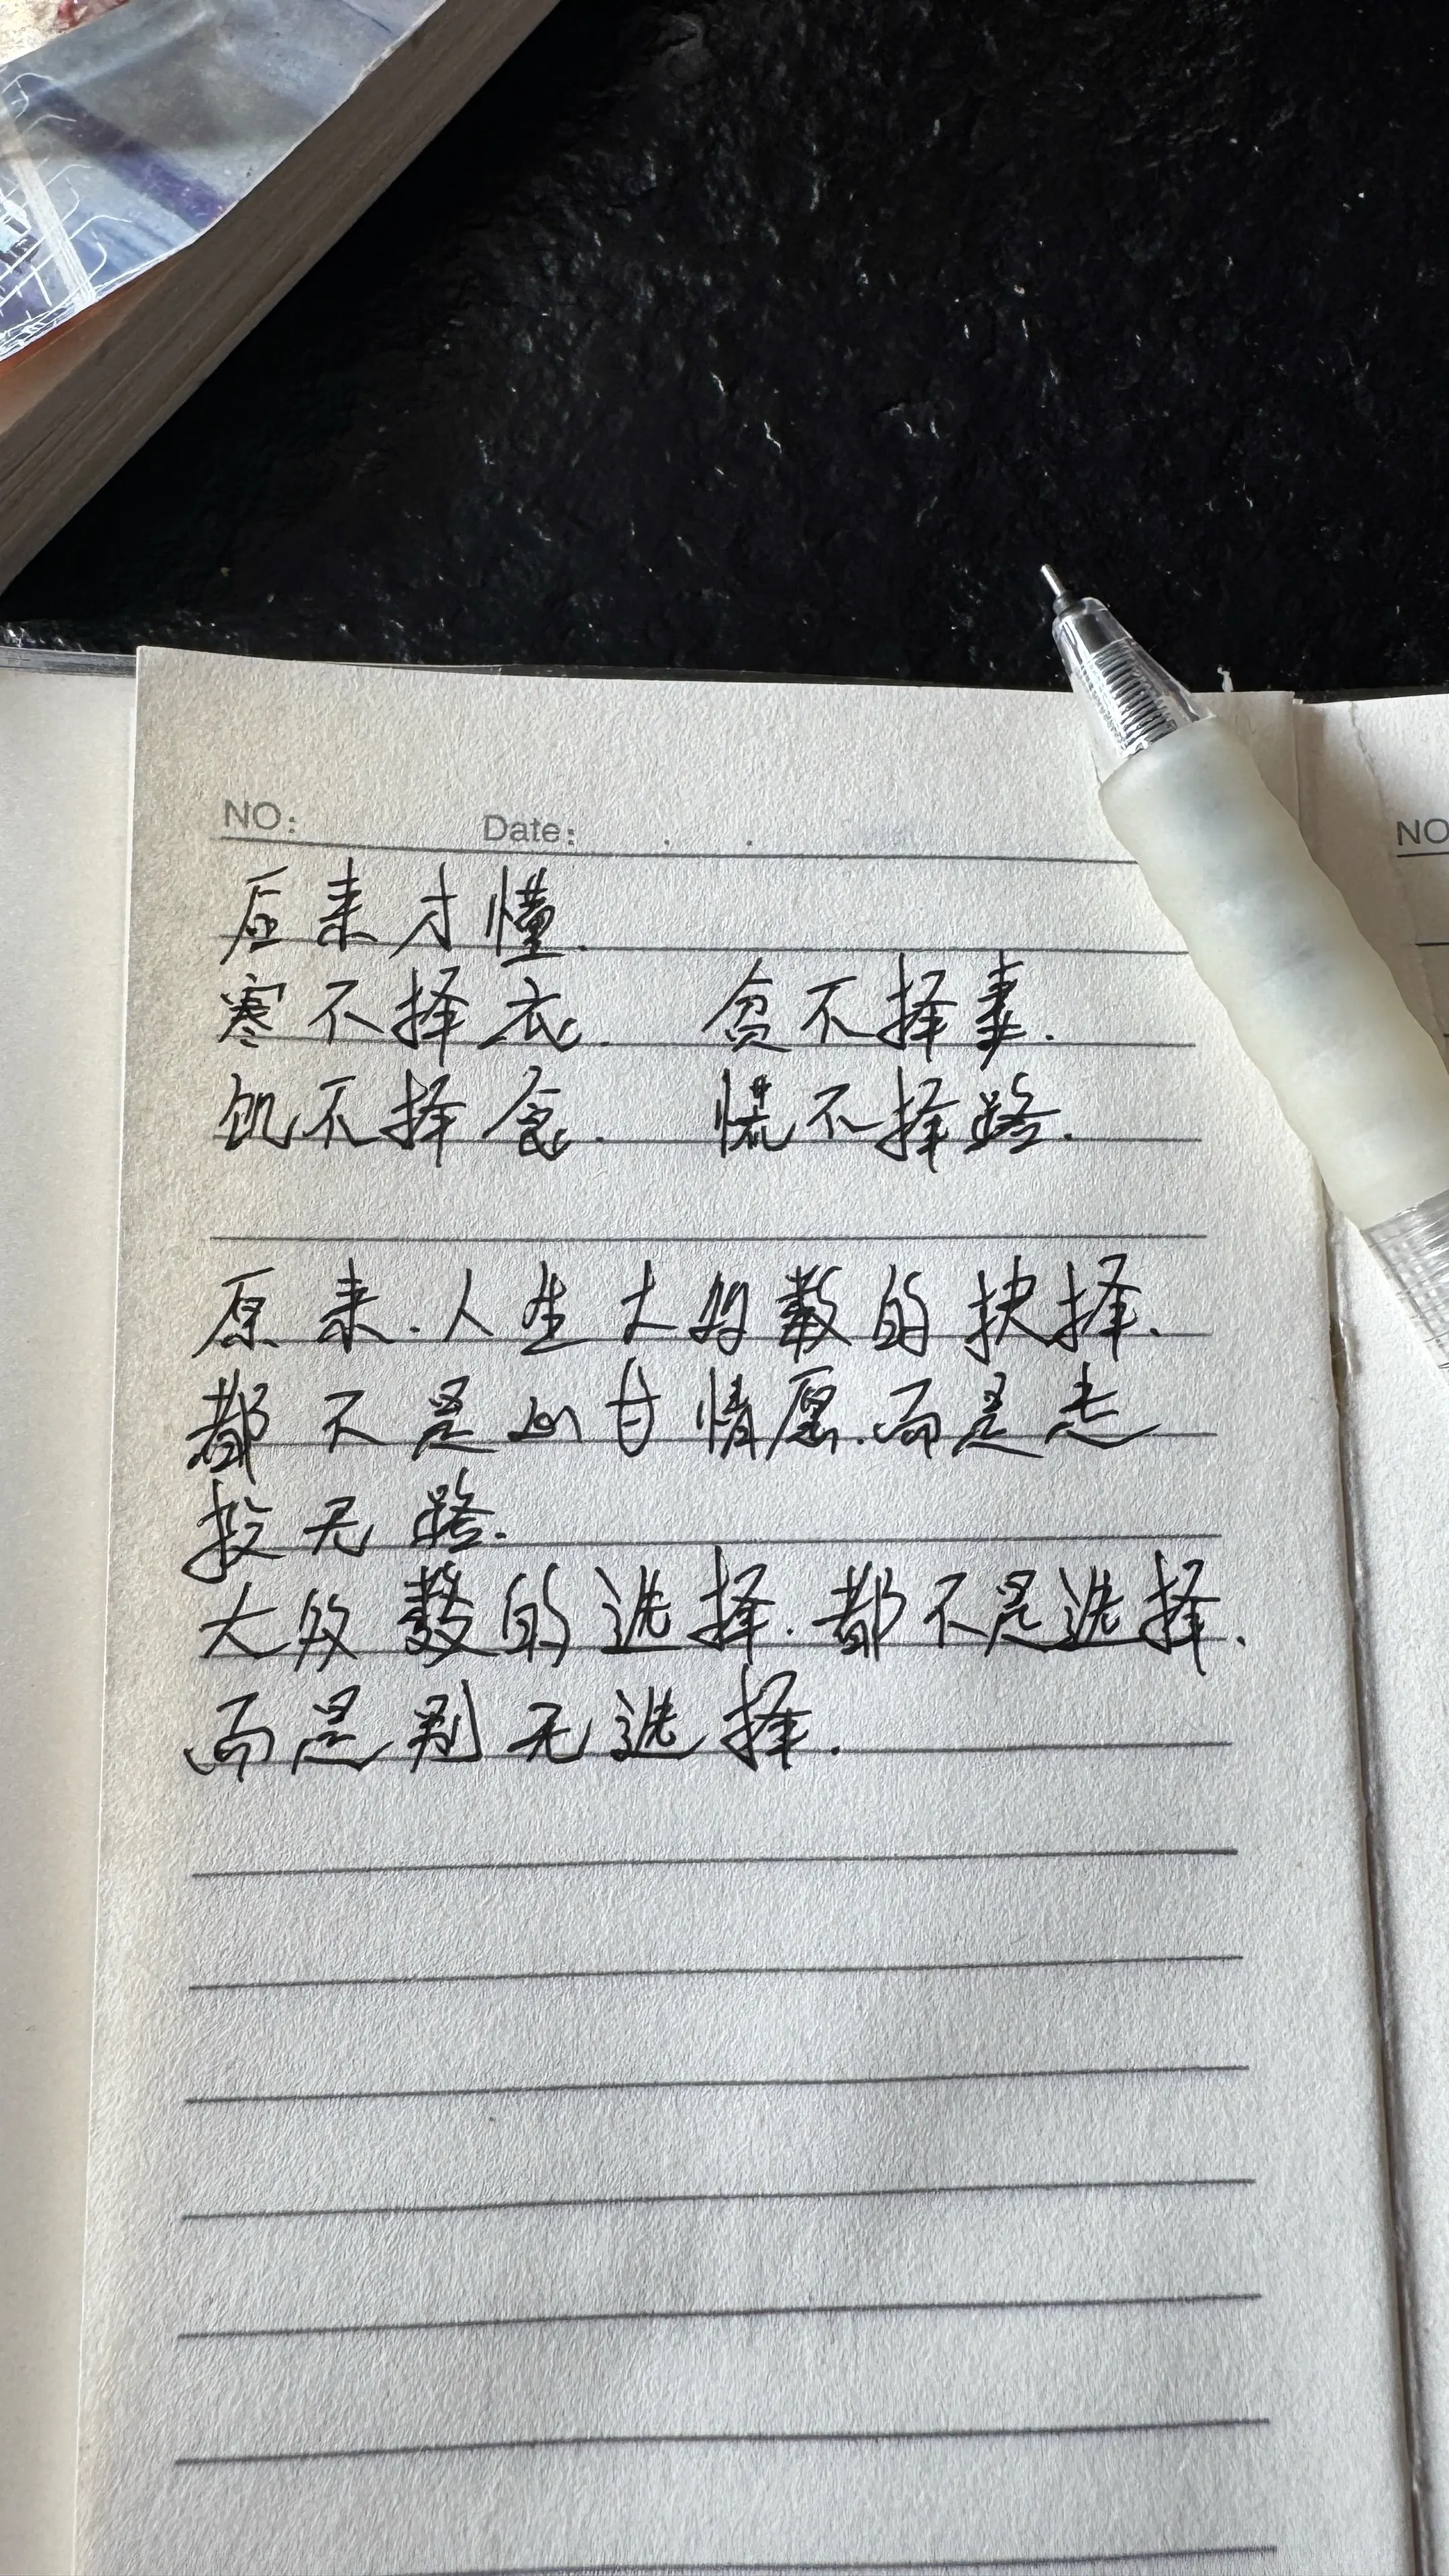 NO: Date: . .
后来才懂.
寒不择衣. 贫不择妻.
饥不择食. 慌不择路.
原来.人生大多数的抉择.
都不是心甘情愿.而是走
投无路.
大多数的选择.都不是选择.
而是别无选择.
NO